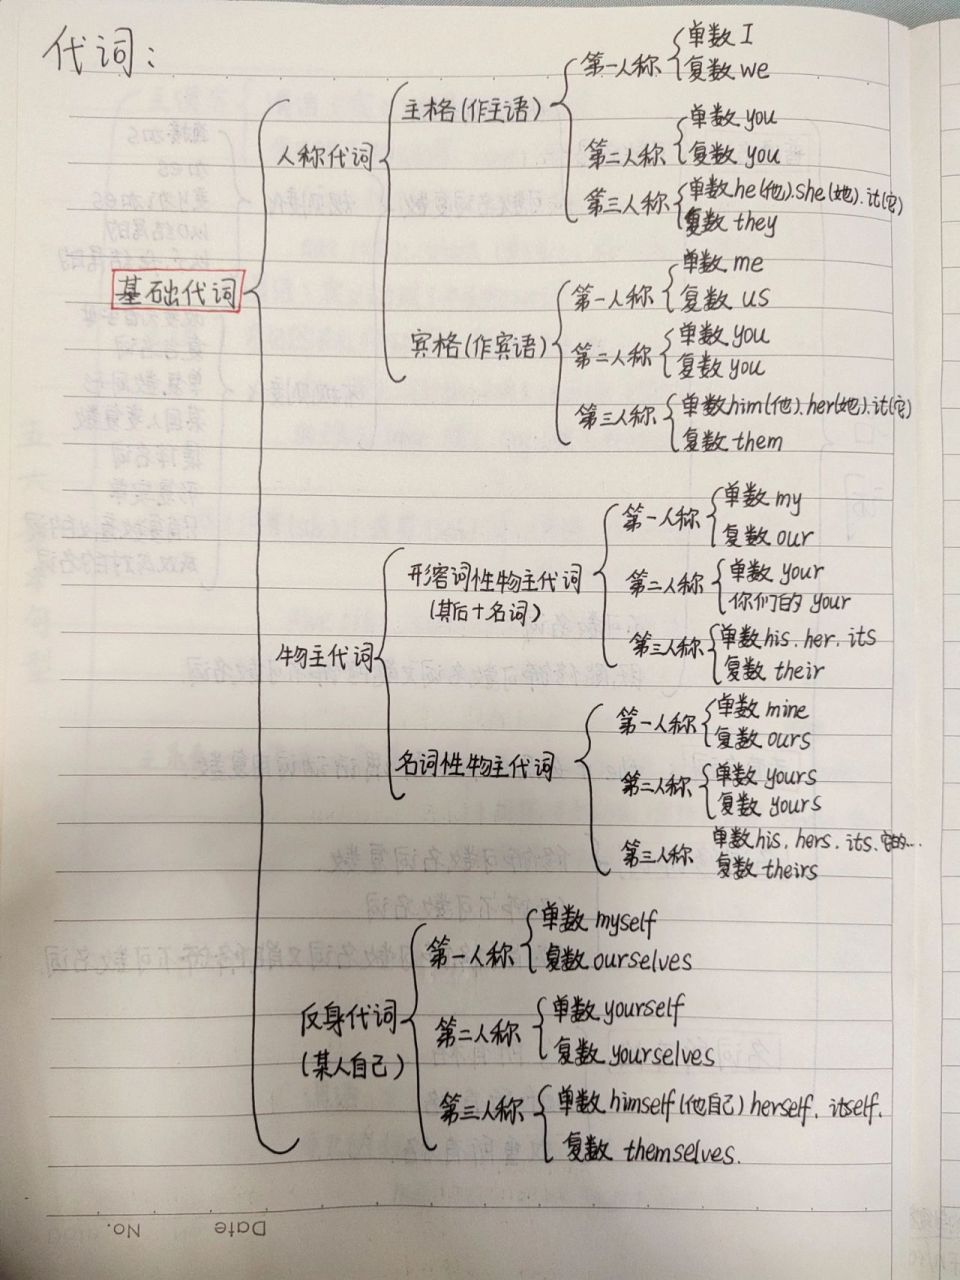 代词：
单数 I
第一人称
复数 we
主格(作主语)
单数 you
第二人称
复数 you
人称代词
单数 he(他).she(她).it(它)
第三人称
复数 they
单数 me
第一人称
复数 us
基础代词
单数 you
宾格(作宾语)
第二人称
复数 you
单数 him(他).her(她).it(它)
第三人称
复数 them
单数 my
第一人称
复数 our
形容词性物主代词
(其后+名词)
单数 your
第二人称
你们的 your
单数 his. her. its
第三人称
复数 their
物主代词
单数 mine
第一人称
复数 ours
名词性物主代词
单数 yours
第二人称
复数 yours
单数 his. hers. its.它的...
第三人称
复数 theirs
单数 myself
第一人称
复数 ourselves
反身代词
(某人自己)
单数 yourself
第二人称
复数 yourselves
单数 himself(他自己) herself. itself.
第三人称
复数 themselves.
Date No.